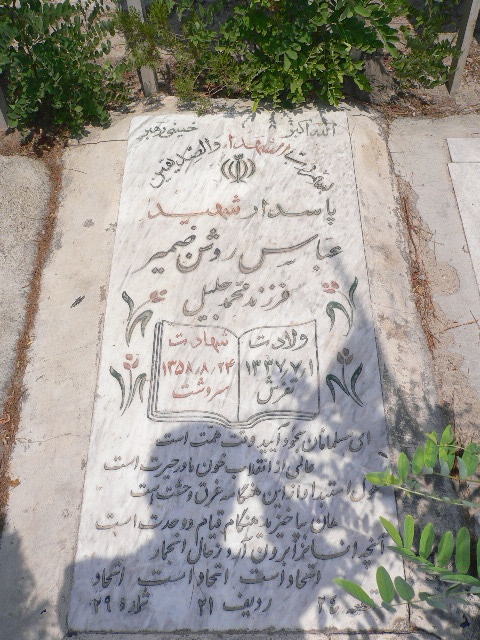 الله اکبر
خمینی رهبر
الشهداء والصدیقین
پاسدار شهید
عباس روشن ضمیر
فرزند محمد جلیل
ولادت
۱۳۳۷/۷/۱
تفرش
شهادت
۱۳۵۸/۸/۲۴
سردشت
ای مسلمانان بخود آیید وقت همت است
عالمی از انقلاب خون ما در حیرت است
استبداد از این هنگامه غرق وحشت است
هان بپا خیزید هنگام قیام و وحدت است
آنچه انسانرا برون آرد زحال انجماد
اتحاد است اتحاد است اتحاد
قطعه ۲۴ ردیف ۲۱ شماره ۲۹